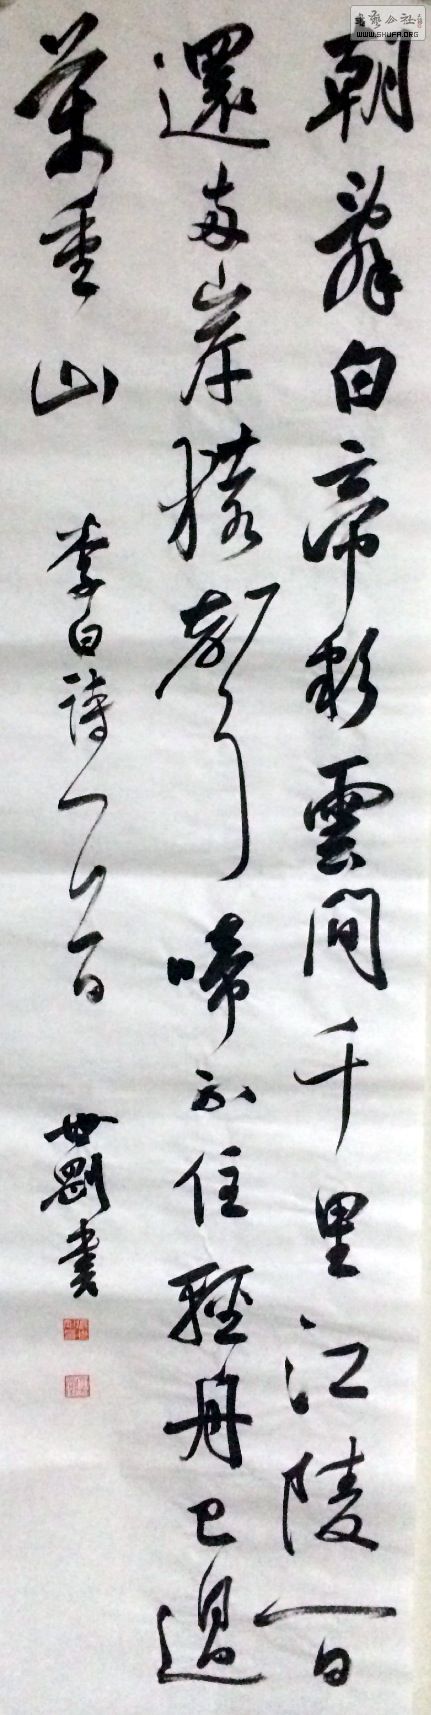 書藝公社
WWW.SHUFA.ORG
朝辭白帝彩雲間千里江陵一日
還兩岸猿聲啼不住輕舟已過
萬重山
李白詩一首
世剛書